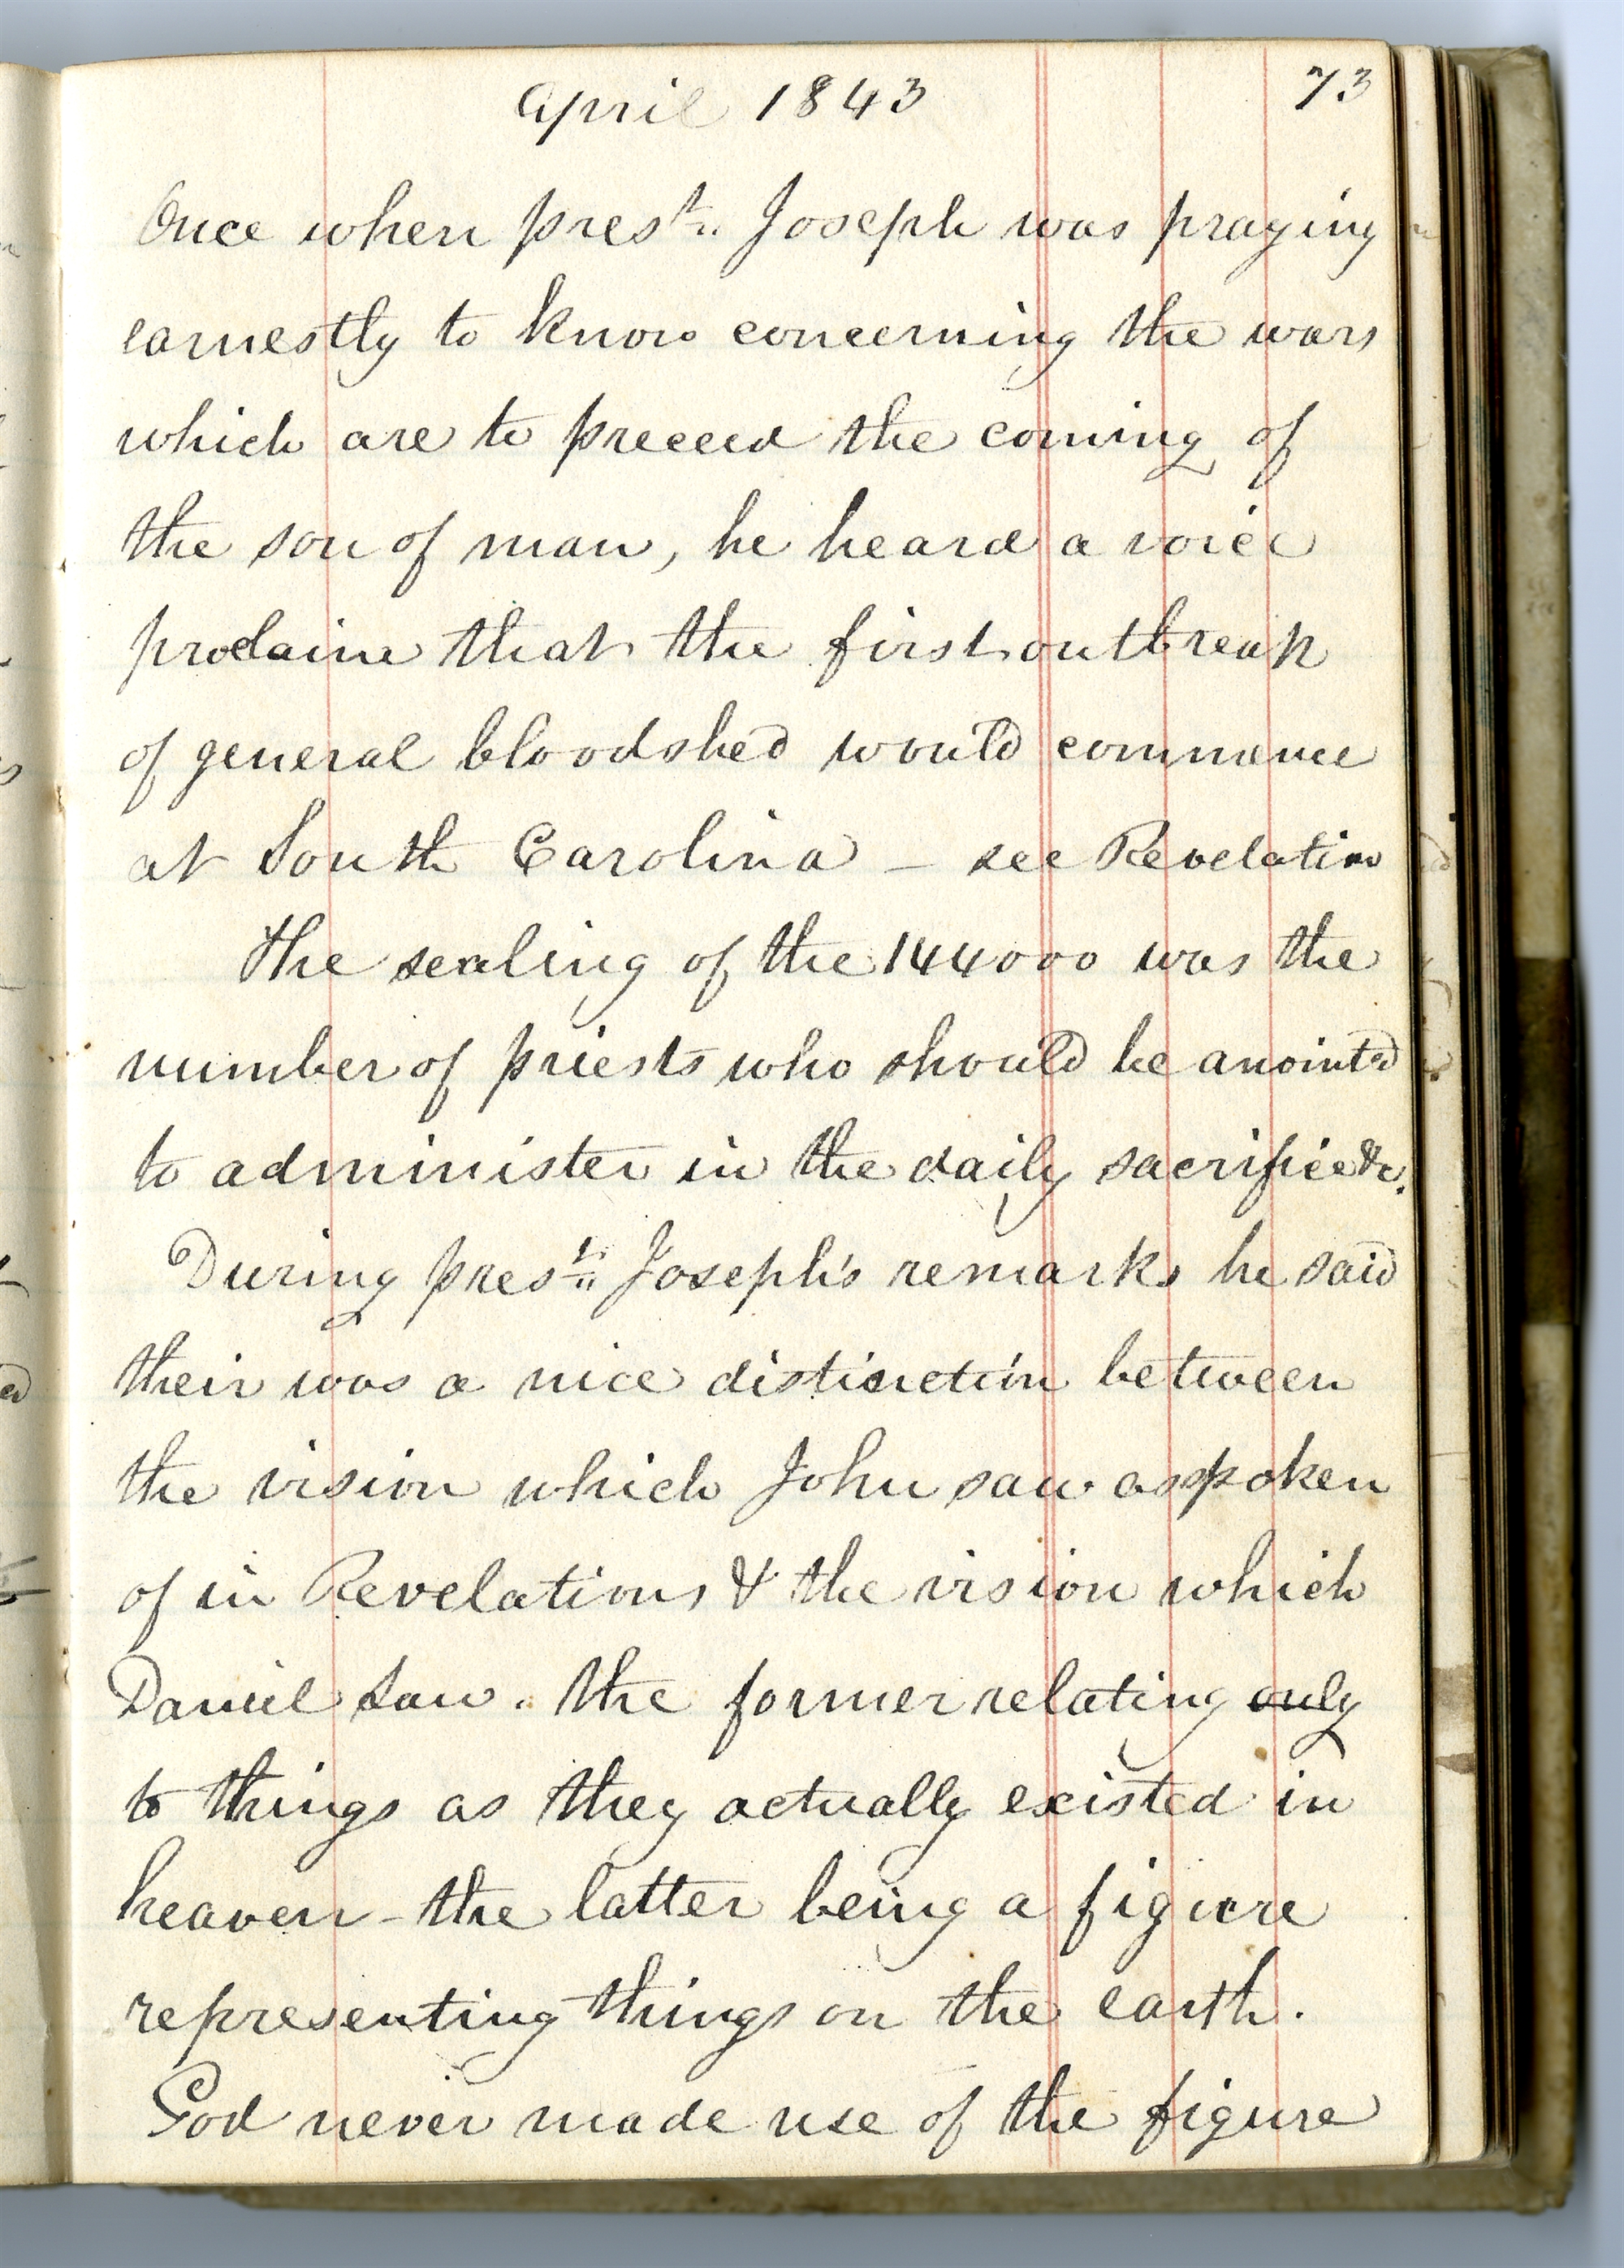 April 1843 73
Once when prest. Joseph was praying
earnestly to know concerning the wars
which are to preceed the coming of
the son of man, he heard a voice
proclaim that the first outbreak
of general bloodshed would commence
at South Carolina — see Revelation
The sealing of the 144000 was the
number of priests who should be anointed
to administer in the daily sacrifice &c.
During prest. Joseph's remarks he said
their was a nice distinction between
the vision which John saw as spoken
of in Revelations & the vision which
Daniel saw. the former relating only
to things as they actually existed in
heaven - the latter being a figure
representing things on the earth.
God never made use of the figure